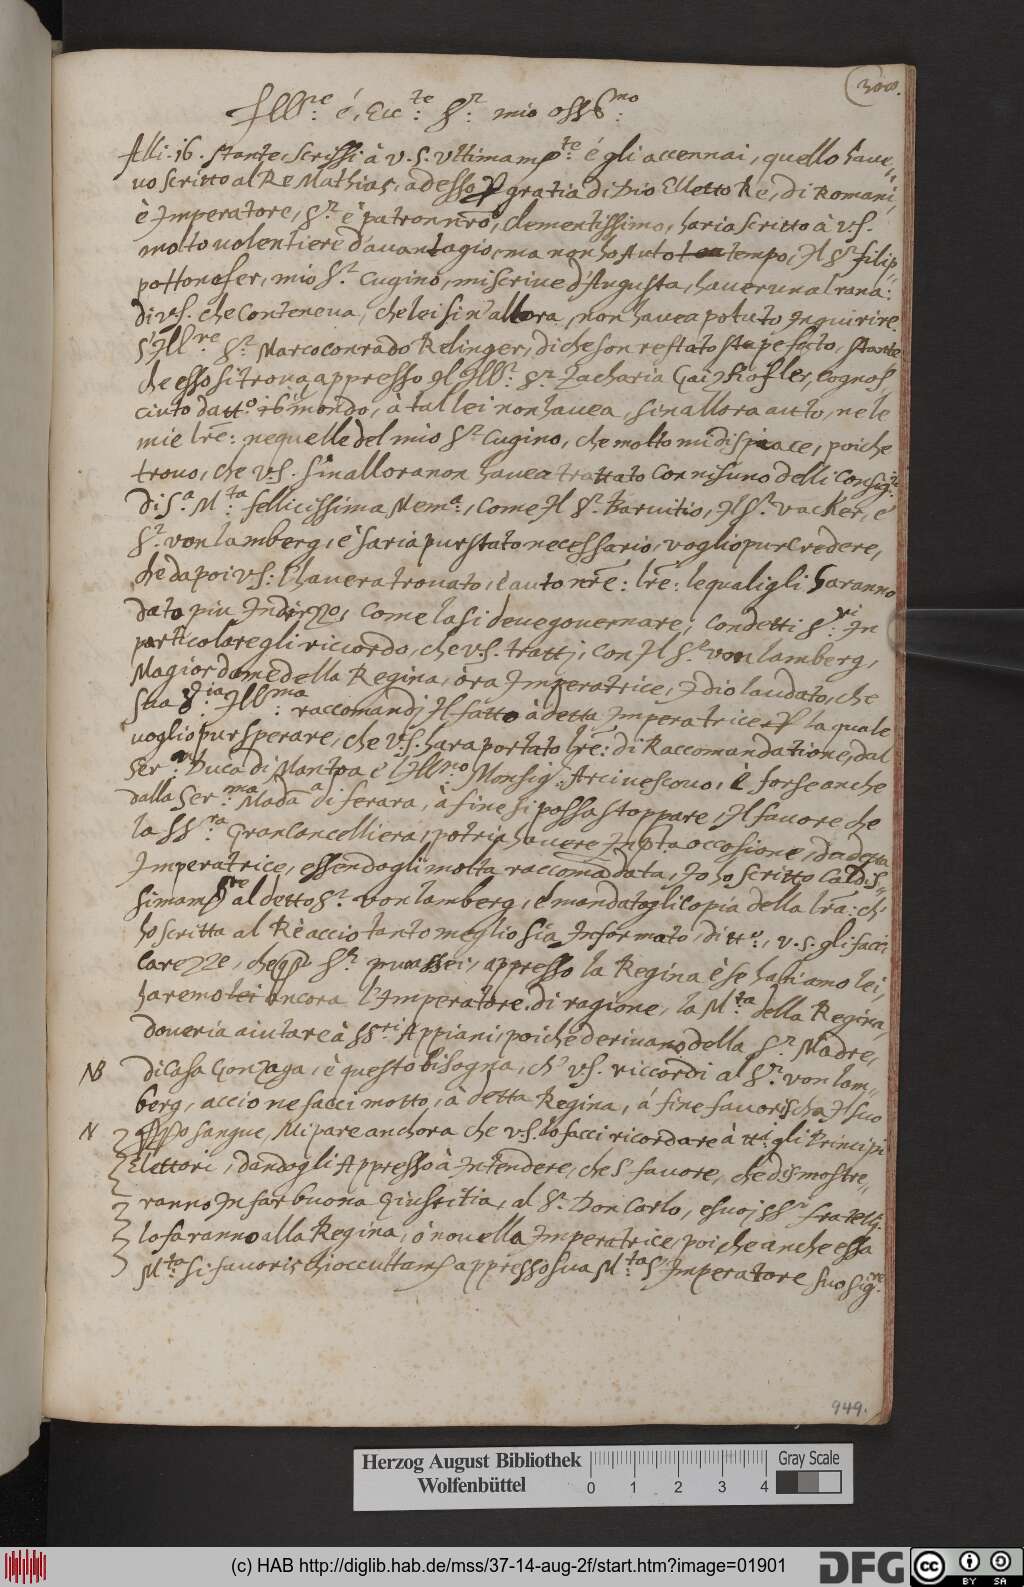 Ill.re é, Ecc.te S.r mio oss.mo
Alli . 16 . stante, scrissi à V. S. Ultimam.te é gli accennai, quello have,,
vo scritto al Re Mathias, adesso p gratia di Dio Elletto Rè, di Romani,
è Imperatore, S.r é patron nro, Clementissimo, haria scritto à V.S.
molto volentiere d'avantagio, ma non ho Auto tempo, Il S.r filip,,
po Honofer, mio S.r Cugino, mi scrive d'Augusta, haver una l'rana:
di V.S. che Conteneva, che lei sin'allora, non havea potuto Inquirire
S.r Ill.re S.r Marco Conrado Relinger, di che son restato stupefatto, stante
che esso si trova appresso Il Ill.r S.r Zacharia Gaizkofler, cognos,,
ciuto da tt.o il mondo, à tal lei non havea, sin allora auto, ne le
mie lre: ne quelle del mio S.r Cugino, che molto mi dispiace, poiche
trovo, che V.S. sin allora non havea trattato con nisuno delli Consig.ri
di S.a M.ta fellicissima Mem.a, Come Il S.r Barvitio, Il S.r Vacker, é
S.r von lamberg, é saria pur stato necessario, voglio pur Credere,
che dapoi V.S: l'havera trovato, é auto nre: lre: le quali gli haranno
dato piu Indirizzo, Come la si deve governare, Con detti S.ri In
particolare gli riccordo, che V.S. tratti, con Il S.r von lamberg,
Magiordome della Regina, òra Imperatrice, Idio laudato, che
Sua S.ria Ill.ma raccomandi Il fatto à detta Imperatrice, p la quale
voglio pur sperare, che V.S. hara portato lre: di Raccomandatione, dal
Ser.o Duca di Mantoa è l'Ill.mo Monsig.r Arcivescovo, è forse anche
dalla Ser.ma Mada.a di ferara, à fine si possa stoppare, Il favore che
la SS.ra Gran Cancelliera, potria havere In pta occosione, da detta
Imperatrice, essendogli molta raccomadata, Io ho scritto Caldis,,
simam.te al detto S.r von lamberg, é mandatogli Copia della lra: ch'
ho scritta al Rè accio tanto meglio sia Informato, di tt.o, V.S. gli facci
Carezze, che appresso la Regina è se haviamo lei,
haremo lei ancora l'Imperatore. di ragione, la M.ta della Regina,
doveria aiutare à SS.ri Appiani, poiche derivano della S.r Madre,
NB di Casa Gonzaga, è questo bisogna, ch' V.S. riccordi al S.r von lam,,
berg, accio ne facci motto, à detta Regina, á fine favorischa Il suo
N sangue, Mi pare anchora che V.S. lo facci ricordare à tti gli Principi
Elettori, dandogli Appresso à Intendere, che S.r favore, che dismostre,,
ranno In far buona Giustitia, al S.r Don Carlo, e suoj SS.ri fratelli.
lo faranno alla Regina, ó novella Imperatrice, poiche anche essa
M.ta si favorischi occultam.e appresso sua M.ta S.r Imperatore suo sig.re
949.
Herzog August Bibliothek
Wolfenbüttel
0 1 2 3 4
Gray Scale
(c) HAB http://diglib.hab.de/mss/37-14-aug-2f/start.htm?image=01901
DFG
cc BY SA